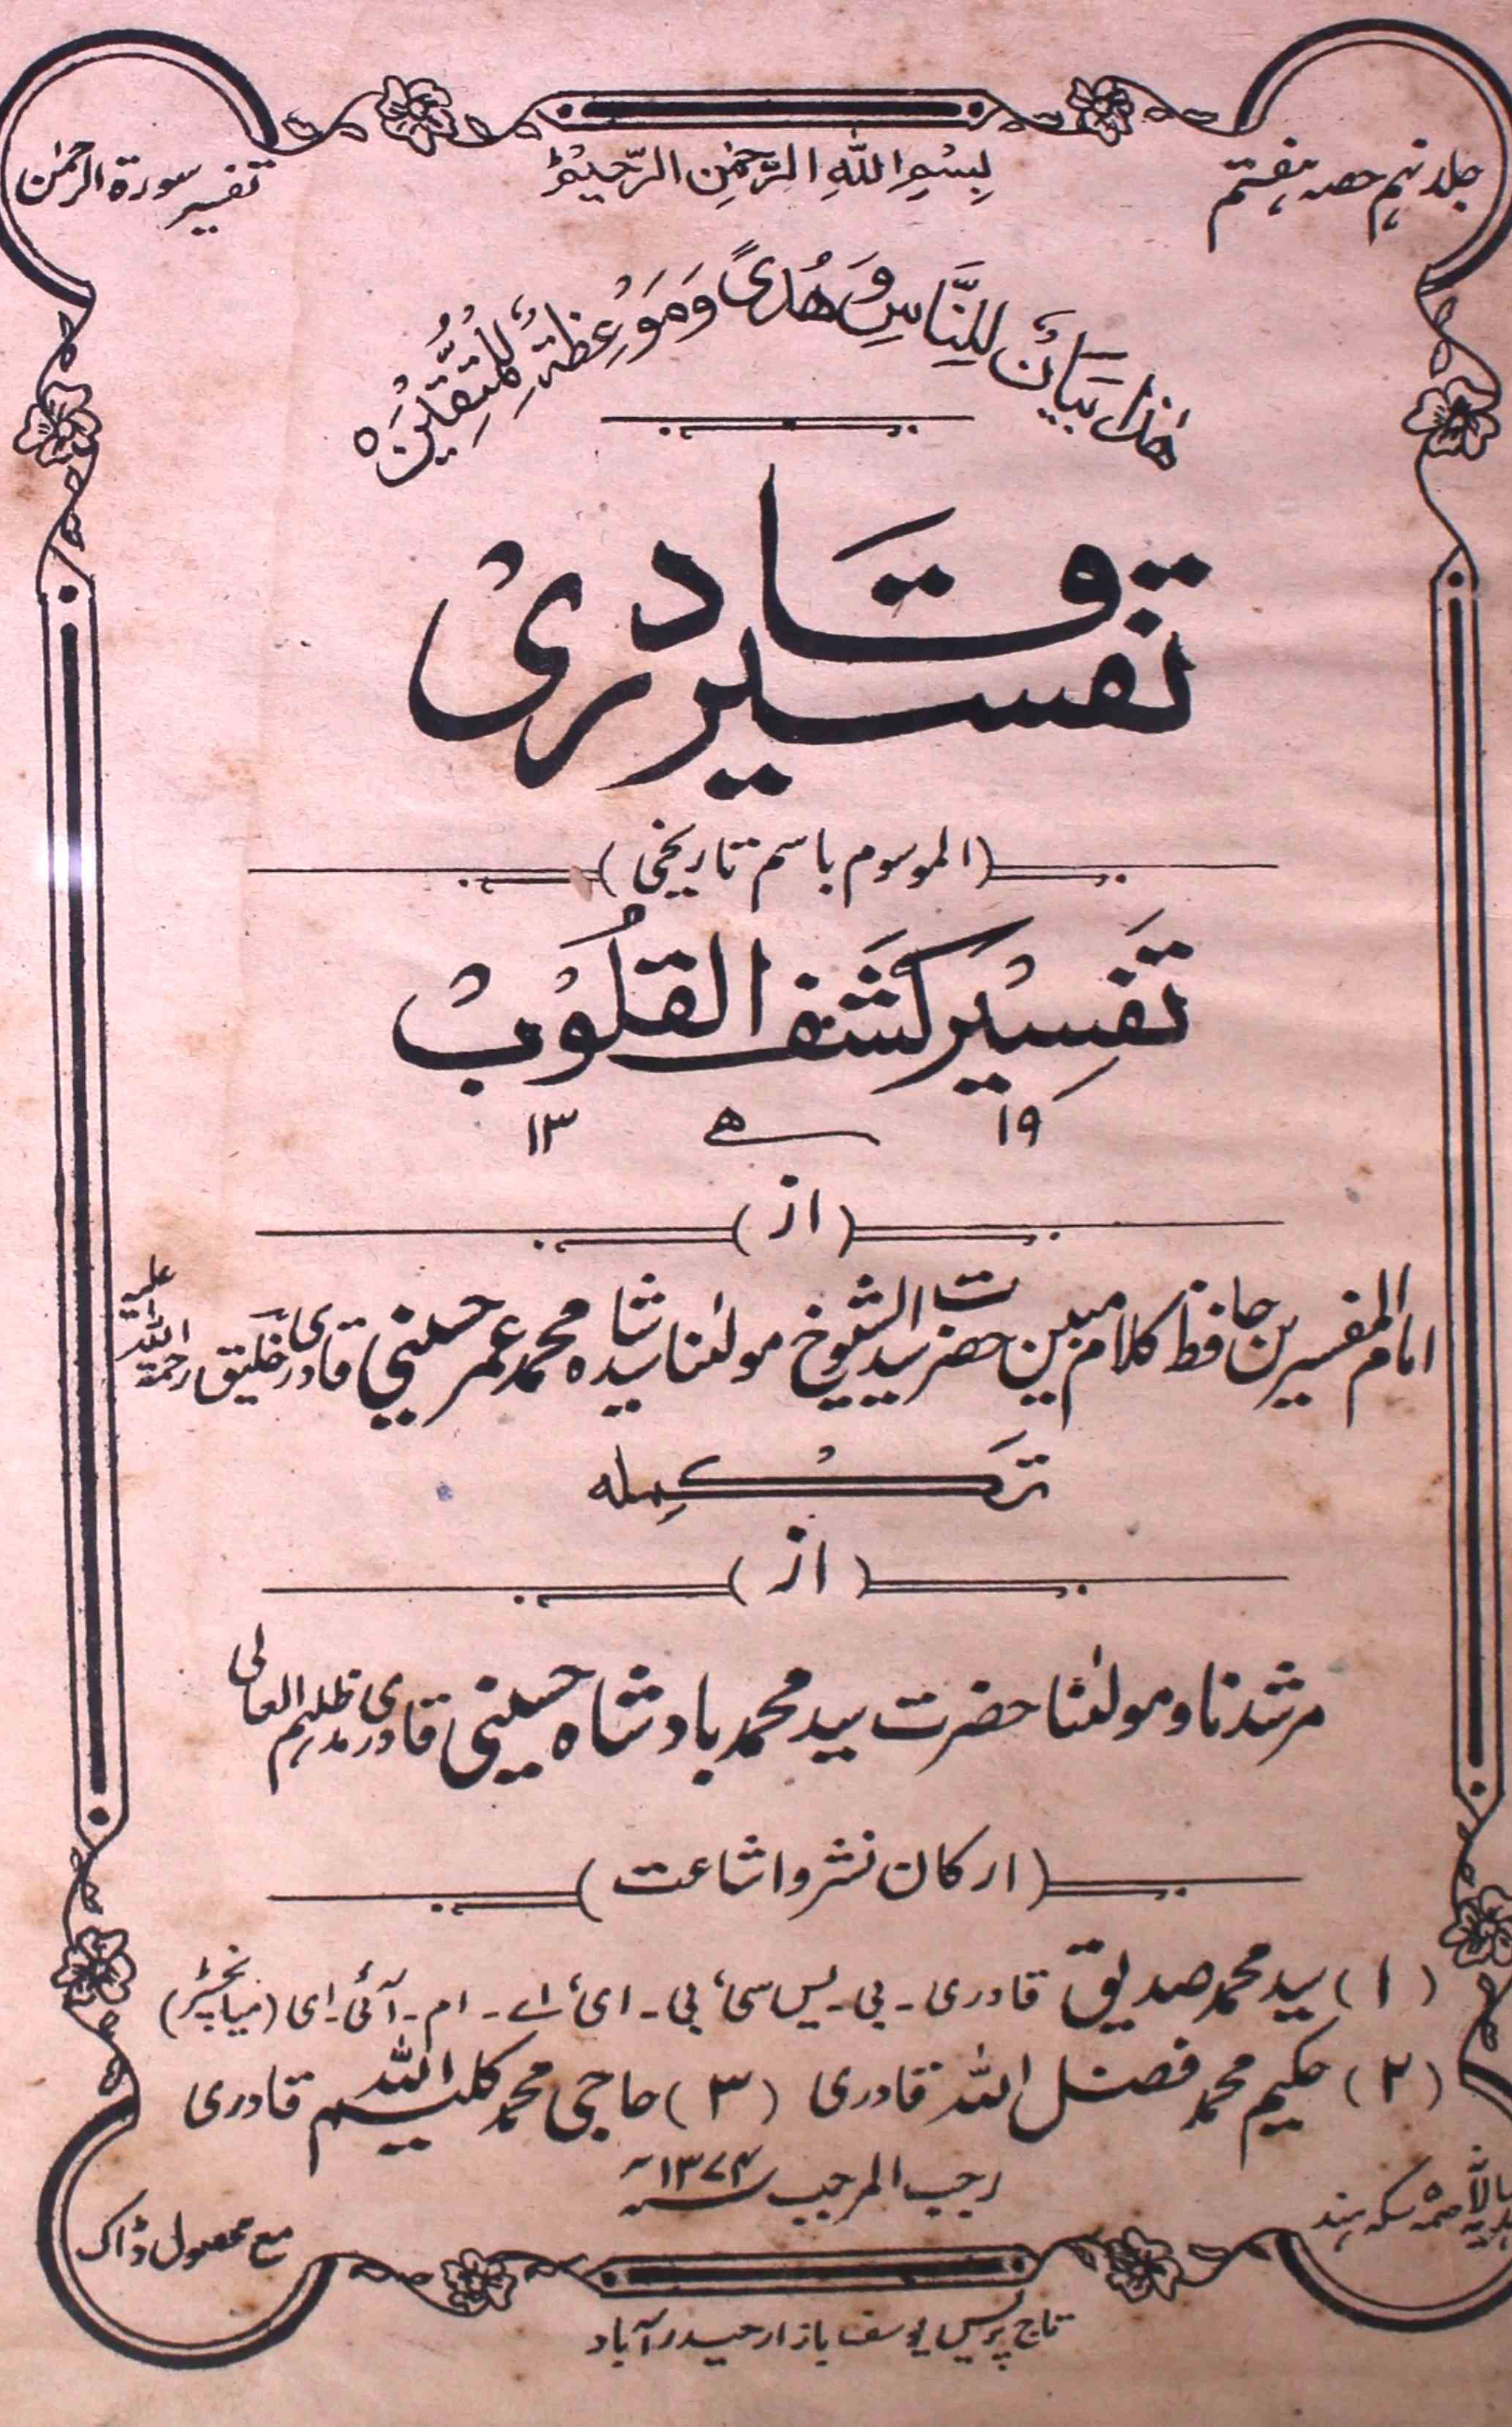 جلد نہم حصہ ہفتم
بِسْمِ اللّٰهِ الرَّحْمٰنِ الرَّحِيْمِ
تفسیر سورۃ الرحمٰن
هٰذَا بَيَانٌ لِّلنَّاسِ وَهُدًى وَّمَوْعِظَةٌ لِّلْمُتَّقِيْنَ ه
تفسیر قادری
(الموسوم باسم تاریخی)
تَفسِیْر کَشفُ القُلُوْبْ
۱۹ ھ ۱۳
(از)
امام المفسرین حافظ کلام مبین حضرت سید الشیوخ مولٰنا سید شاہ محمد عمر حسینی قادری خلیق رحمۃ اللہ علیہ
تَکْمِلہ
(از)
مرشدنا و مولٰنا حضرت سید محمد بادشاہ حسینی قادری مدظلہم العالی
(ارکان نشر و اشاعت)
(۱) سید محمد صدیق قادری ۔ بی ۔ یس سی، بی ۔ ای، اے ۔ ام ۔ آئی ۔ ای (میانچسٹر)
(۲) حکیم محمد فضل اللہ قادری (۳) حاجی محمد کلیم اللہ قادری
رجب المرجب ۱۳۷۴ھ
سکہ ہند
مع محصول ڈاک
تاج پریس یوسف بازار حیدرآباد